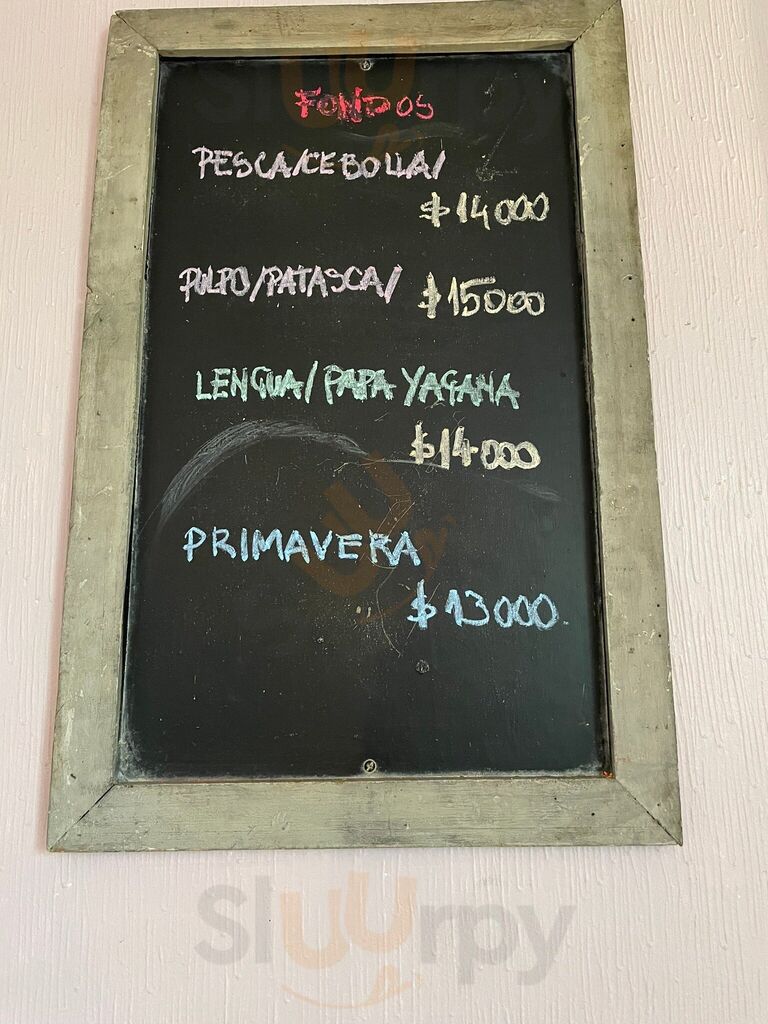 FONDOS
PESCA/CEBOLLA/
$14000
PULPO/PATASCA/ $15000
LENGUA/PAPA YAGANA
$14000
PRIMAVERA
$13000
Sluurpy